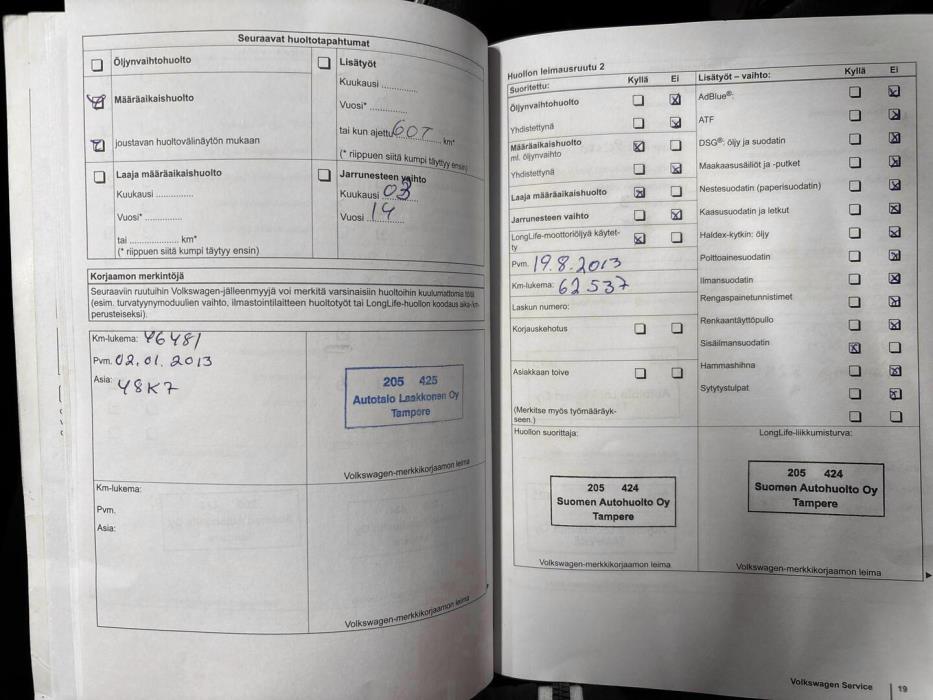 Seuraavat huoltotapahtumat
Öljynvaihtohuolto
Määräaikaishuolto
joustavan huoltovälinäytön mukaan
Lisätyöt
Kuukausi ..............
Vuosi* ..............
tai kun ajettu 60T km*
(* riippuen siitä kumpi täytyy ensin)
Laaja määräaikaishuolto
Kuukausi ..............
Vuosi* ..............
tai .................. km*
(* riippuen siitä kumpi täytyy ensin)
Jarrunesteen vaihto
Kuukausi 03
Vuosi 14
Korjaamon merkintöjä
Seuraaviin ruutuihin Volkswagen-jälleenmyyjä voi merkitä varsinaisiin huoltoihin kuulumattomia töitä
(esim. turvatyynymoduulien vaihto, ilmastointilaitteen huoltotyöt tai LongLife-huollon koodaus aika-/km-
perusteiseksi).
Km-lukema: 46481
Pvm. 02.01.2013
Asia: 48K7
205 425
Autotalo Laakkonen Oy
Tampere
Volkswagen-merkkikorjaamon leima
Km-lukema:
Pvm.
Asia:
Volkswagen-merkkikorjaamon leima
Huollon leimausruutu 2
Suoritettu: Kyllä Ei
Öljynvaihtohuolto
Yhdistettynä
Määräaikaishuolto
ml. öljynvaihto
Yhdistettynä
Laaja määräaikaishuolto
Jarrunesteen vaihto
LongLife-moottoriöljyä käytet-
ty
Pvm. 19.8.2013
Km-lukema: 62537
Laskun numero:
Korjauskehotus
Asiakkaan toive
(Merkitse myös työmääräyk-
seen.)
Lisätyöt – vaihto: Kyllä Ei
AdBlue®:
ATF
DSG®: öljy ja suodatin
Maakaasusäiliöt ja -putket
Nestesuodatin (paperisuodatin)
Kaasusuodatin ja letkut
Haldex-kytkin: öljy
Polttoainesuodatin
Ilmansuodatin
Rengaspainetunnistimet
Renkaantäyttöpullo
Sisäilmansuodatin
Hammashihna
Sytytystulpat
Huollon suorittaja:
205 424
Suomen Autohuolto Oy
Tampere
Volkswagen-merkkikorjaamon leima
LongLife-liikkumisturva:
205 424
Suomen Autohuolto Oy
Tampere
Volkswagen-merkkikorjaamon leima
Volkswagen Service 19